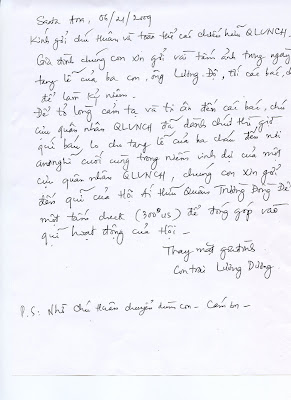 Santa Ana, 06/21/2009
Kính gởi chú Thuân và toàn thể các chiến hữu QLVNCH.
Gia đình chúng con xin gởi vài tấm ảnh trong ngày
tang lễ của ba con, ông Lương Đô, tới các bác, chú
để làm kỷ niệm.
Để tỏ lòng cảm tạ và tri ân đến các bác, chú
cựu quân nhân QLVNCH đã dành chút thì giờ
quí báu, lo cho tang lễ của ba cháu đến nơi
an nghỉ cuối cùng trong niềm vinh dự của một
cựu quân nhân QLVNCH, chúng con xin gởi
đến quĩ của Hội Ái Hữu Quân Trường Đồng Đế
một tấm check (300 US) để đóng góp vào
quĩ hoạt động của Hội -
Thay mặt gia đình
Con trai Lương Dương
P.S: Nhờ chú Thuân chuyển dùm con - Cám ơn -